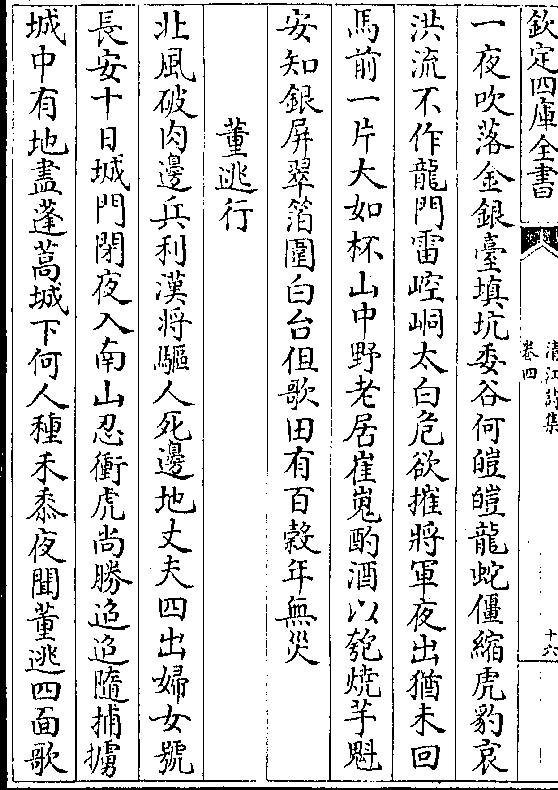 欽定四庫全書
清江詩集
卷四
十六
一夜吹落金銀臺填坑委谷何皚皚龍蛇僵縮虎豹哀
洪流不作龍門雷崆峒太白危欲摧將軍夜出猶未回
馬前一片大如杯山中野老居崔嵬酌酒以匏燒芋魁
安知銀屏翠箔圍白台但歌田有百穀年無災
董逃行
北風破肉邊兵利漢將驅人死邊地丈夫四出婦女號
長安十日城門閉夜入南山忍衝虎尚勝迢迢隨捕擄
城中有地盡蓬蒿城下何人種禾黍夜聞董逃四面歌